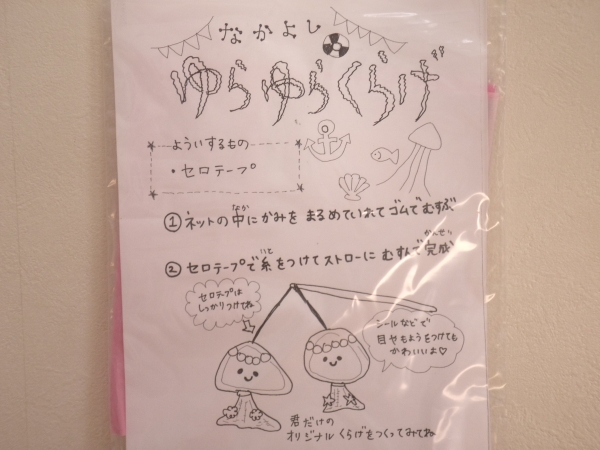 なかよし
ゆらゆらくらげ
よういするもの
・セロテープ
①ネットの中にかみをまるめていれてゴムでむすぶ
なか
②セロテープで糸をつけてストローにむすんで完成
いと
かんせい
セロテープは
しっかりつけてね
シールなどで
目やもようをつけても
かわいいよ♡
君だけの
オリジナルくらげをつくってみてね